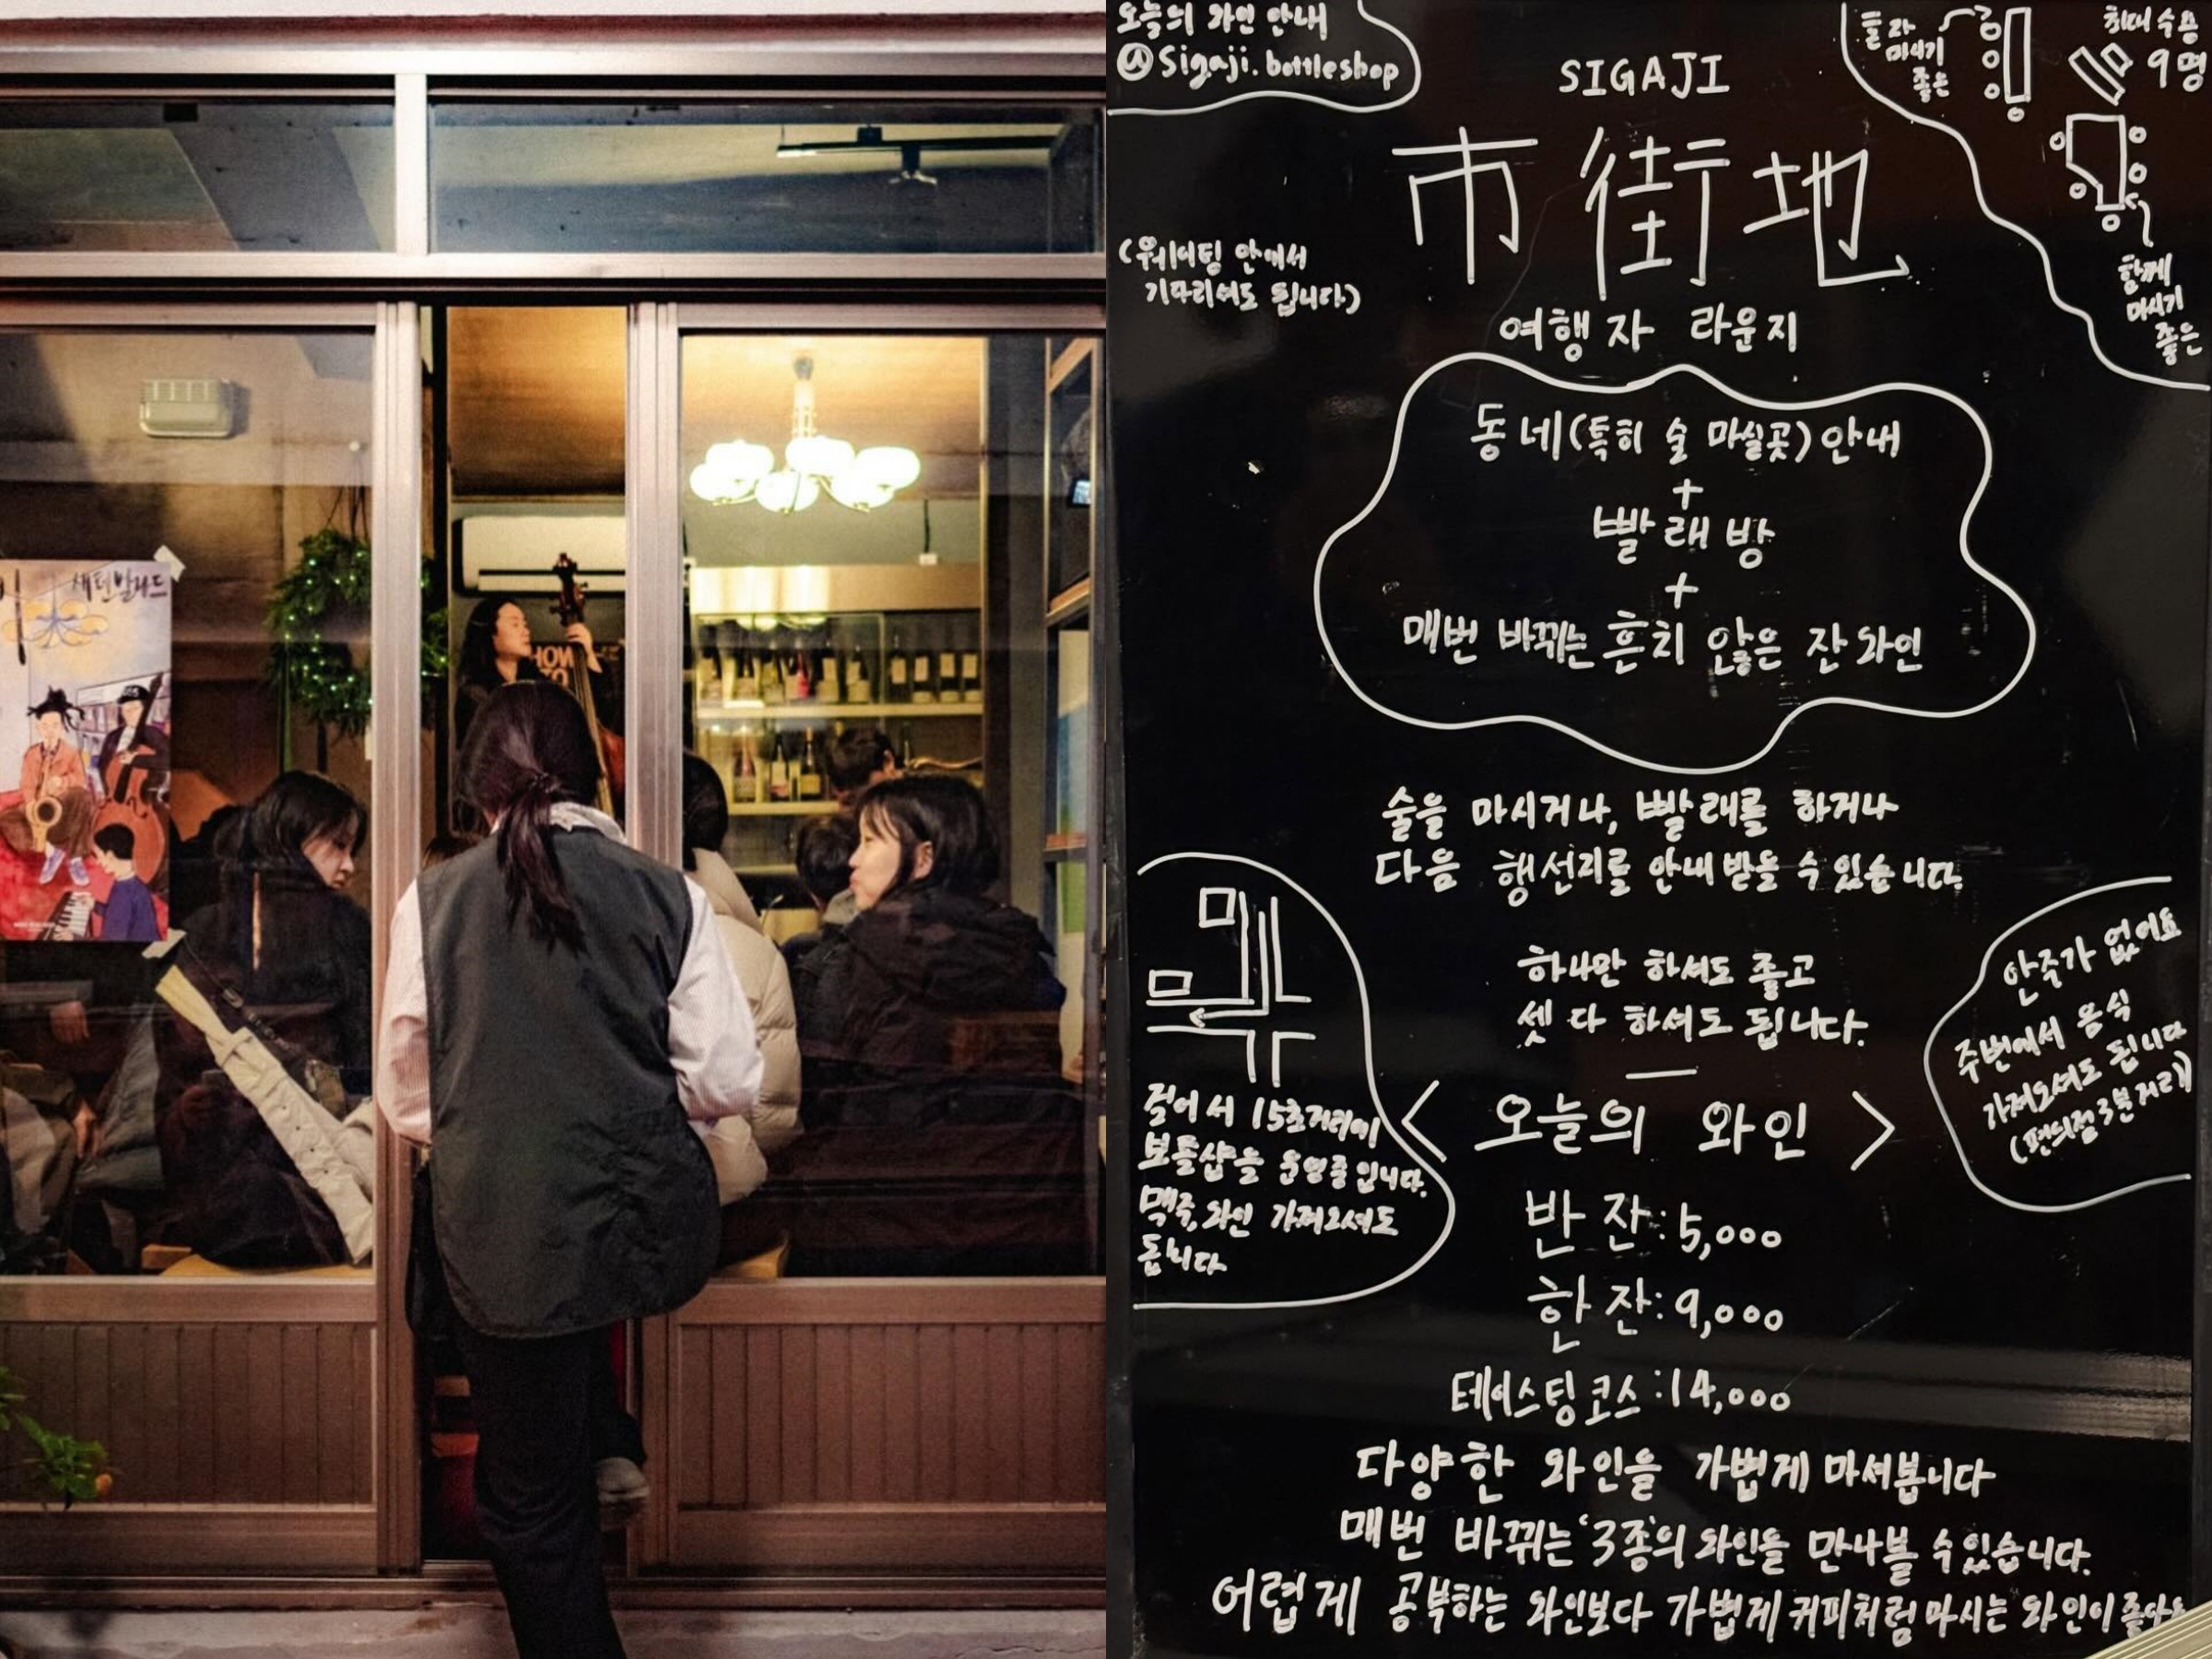 새턴발라드
HOW
TO
오늘의 와인 안내
@sigaji.bottleshop
SIGAJI
市街地
여행자 라운지
(웨이팅 안에서
기다리셔도 됩니다)
혼자
마시기
좋은
최대 수용
9명
함께
마시기
좋은
동네(특히 술 마실곳) 안내
+
빨래방
+
매번 바뀌는 흔치 않은 잔 와인
술을 마시거나, 빨래를 하거나
다음 행선지를 안내받을 수 있습니다.
하나만 하셔도 좋고
셋 다 하셔도 됩니다.
걸어서 15초거리에
보틀샵을 운영중입니다.
맥주, 와인 가져오셔도
됩니다
안주가 없어요
주변에서 음식
가져오셔도 됩니다
(편의점 3분거리)
<오늘의 와인>
반 잔: 5,000
한 잔: 9,000
테이스팅 코스: 14,000
다양한 와인을 가볍게 마셔봅니다
매번 바뀌는 '3종'의 와인들 만나볼 수 있습니다.
어렵게 공부하는 와인보다 가볍게 커피처럼 마시는 와인이 좋아요